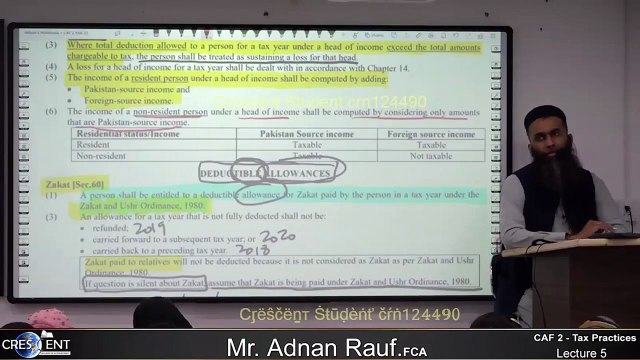 (3) Where total deduction allowed to a person for a tax year under a head of income exceed the total amounts
chargeable to tax, the person shall be treated as sustaining a loss for that head.
(4) A loss for a head of income for a tax year shall be dealt with in accordance with Chapter 14.
(5) The income of a resident person under a head of income shall be computed by adding:
• Pakistan-source income and
• Foreign-source income.
(6) The income of a non-resident person under a head of income shall be computed by considering only amounts
that are Pakistan-source income.
Residential status/Income Pakistan Source income Foreign source income
Resident Taxable Taxable
Non-resident Taxable Not taxable
DEDUCTIBLE ALLOWANCES
Zakat [Sec.60]
(1) A person shall be entitled to a deductible allowance for Zakat paid by the person in a tax year under the
Zakat and Ushr Ordinance, 1980.
(3) An allowance for a tax year that is not fully deducted shall not be:
• refunded; 2019
• carried forward to a subsequent tax year; or 2020
• carried back to a preceding tax year. 2018
Zakat paid to relatives will not be deducted because it is not considered as Zakat as per Zakat and Ushr
Ordinance, 1980.
If question is silent about Zakat, assume that Zakat is being paid under Zakat and Ushr Ordinance, 1980.
Çŗëŝčëŋт Ṡtũḍėǹť čŕǹ124490
CRESCENT
Mr. Adnan Rauf.FCA
CAF 2 - Tax Practices
Lecture 5